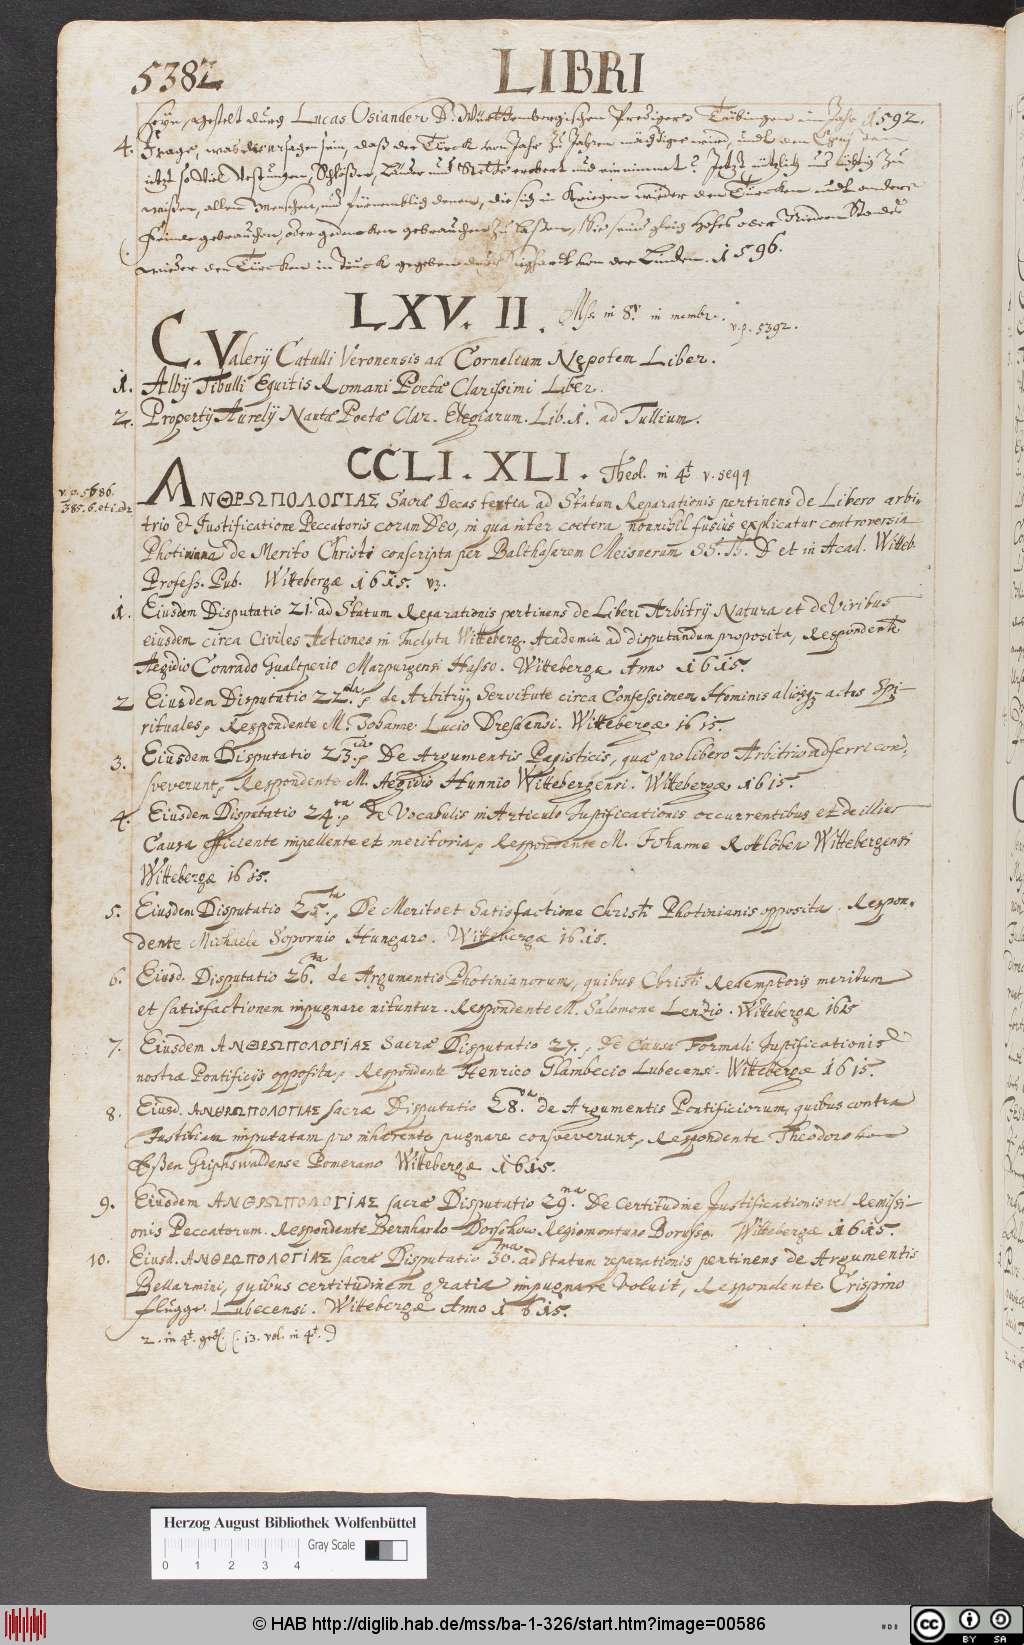 5382
LIBRI
seyn, gestelt durch Lucas Osiander D. Württembergischen Predigern Tübingen im Jahr 1592.
4. Frage, was die ursachen sein, daß der Türck von Jahr zu Jahren mächtiger wird, undt den
itzt so viel Vestungen, Schlößer, Länder und Stette erobert und einnimmat? Jetzt nützlich und lustig zu
wißen, allen Menschen, und fürnemblich denen, die sich in Kriegen wieder den Türcken undt andere
Feinde gebrauchen, oder gedencken gebrauchen zu laßen, Sie sein gleich Hohes oder Niedern Standes
wieder den Türcken in Truck gegeben durch von der Linden. 1596.
LXV. II. Mss. in 8° in membr. v. p. 5392.
C. Valerij Catulli Veronensis ad Cornelium Nepotem Liber.
1. Albij Tibulli Equitis Romani Poetæ Clarissimi Liber.
2. Propertij Aurelij Nautæ Poetæ Clar. Elegiarum. Lib. 1. ad Tullium.
CCLI. XLI. Theol. in 4t v. seqq
v. p. 5686.
ΑΝΘΡΩΠΟΛΟΓΙΑΣ Sacræ Decas tertia ad Statum Reparationis pertinens de Libero arbi-
trio et Justificatione Peccatoris coram Deo, in qua inter cœtera nonnihil fusius explicatur controversia
Photiniana de Merito Christi conscripta per Balthasarem Meisnerum SS. Th. D et in Acad. Witteb.
Profess. Pub. Wittebergæ 1615.
1. Eiusdem Disputatio 21. ad Statum Reparationis pertinens de Liberi Arbitrij Natura et de Viribus
eiusdem circa Civiles Actiones in Inclyta Witteberg. Academia ad disputandum proposita, Respondente
Ægidio Conrado Gualtperio Marpurgensi Hasso. Wittebergæ Anno 1615.
2 Eiusdem Disputatio 22da, de Arbitrij Servitute circa Confessionem Hominis aliosq; actus Spi-
rituales, Respondente M. Johanne Lucio Dresdensi. Wittebergæ 1615.
3. Eiusdem Disputatio 23., De Argumentis Papisticis, quæ pro libero Arbitrio adferri con-
sveverunt, Respondente M. Aegidio Hunnio Wittebergensi. Wittebergæ 1615.
4. Eiusdem Disputatio 24ta, de Vocabulis in Articulo Justificationis occurrentibus et de illius
Causa efficiente impellente et meritoria, Respondente M. Johanne Rottlöben Wittebergensi
Wittebergæ 1615.
5. Eiusdem Disputatio 25ta, De Merito et Satisfactione Christi Photinianis opposita. Respon-
dente Michaele Sopornio Hungaro. Wittebergæ 1615.
6. Eiusd. Disputatio 26ta de Argumentis Photinianorum, quibus Christi Redemptoris meritum
et satisfactionem impugnare nituntur. Respondente M. Salomone Lenzio. Wittebergæ 1615
7. Eiusdem ΑΝΘΡΩΠΟΛΟΓΙΑΣ Sacræ Disputatio 27., de Causa Formali Justificationis
nostræ Pontificijs opposita, Respondente Henrico Glambecio Lubecensi. Wittebergæ 1615.
8. Eiusd. ΑΝΘΡΩΠΟΛΟΓΙΑΣ sacræ Disputatio 28va de Argumentis Pontificiorum, quibus contra
Justitiam imputatam pro inhærente pugnare consveverunt, Respondente Theodoro von
Eßen Griphswaldense Pomerano Wittebergæ 1615.
9. Eiusdem ΑΝΘΡΩΠΟΛΟΓΙΑΣ sacræ Disputatio 29na. De Certitudine Justificationis vel Remissi-
onis Peccatorum. Respondente Bernhardo Dorschow Regiomontano Borusso. Wittebergæ 1615.
10. Eiusd. ΑΝΘΡΩΠΟΛΟΓΙΑΣ sacræ Disputatio 30ma. ad statum reparationis pertinens de Argumentis
Bellarmini, quibus certitudinem gratiæ impugnare voluit, Respondente Crispino
Flügge. Lubecensi. Wittebergæ Anno 1615.
2. in 4t. (: 13. vol. in 4t. :)
Herzog August Bibliothek Wolfenbüttel
Gray Scale
0 1 2 3 4
© HAB http://diglib.hab.de/mss/ba-1-326/start.htm?image=00586
cc BY SA